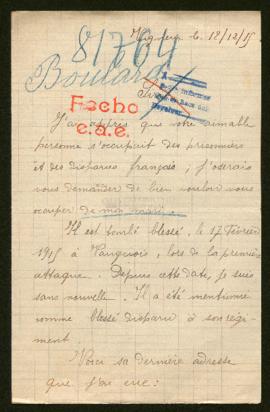 le 18/12/15
81764
Boulard
Fecho
e.a.e.
J'ai appris que votre aimable
personne s'occupait des prisonniers
et des disparus français ; j'oserais
vous demander de bien vouloir vous
occuper de mon
Il est tombé blessé, le 17 Février
1915 à Vauquois, lors de la première
attaque. Depuis cette date, je suis
sans nouvelle. Il a été mentionné
comme blessé disparu à son régi-
ment.
Voici sa dernière adresse
que j'ai eue :